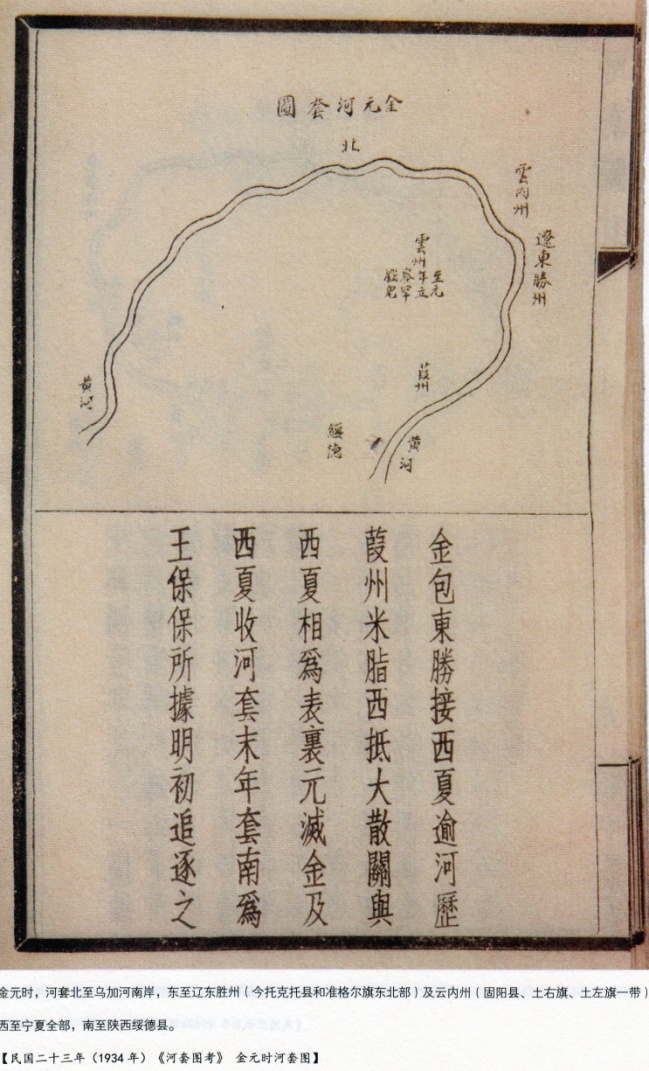 金元河套圖
北
雲內州
遼東勝州
雲州
至元
年立
葭州
綏德
黄河
黄河
金包東勝接西夏逾河歷
葭州米脂西抵大散關與
西夏相爲表裏元滅金及
西夏收河套末年套南爲
王保保所據明初追逐之
金元时，河套北至乌加河南岸，东至辽东胜州（今托克托县和准格尔旗东北部）及云内州（固阳县、土右旗、土左旗一带）
西至宁夏全部，南至陕西绥德县。
【民国二十三年（1934 年）《河套图考》 金元时河套图】